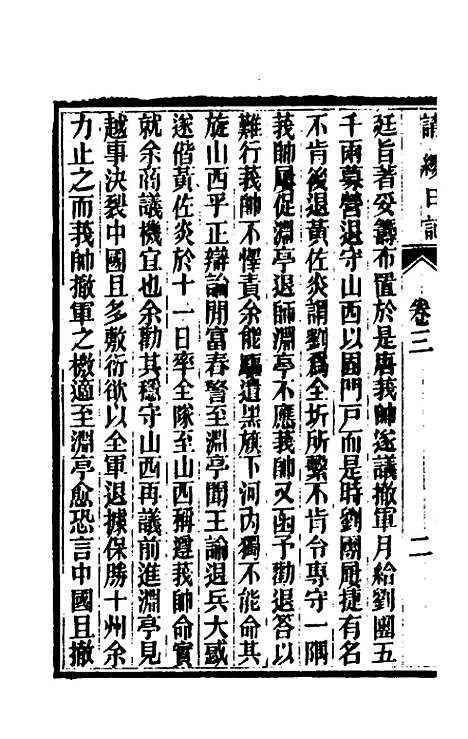 請纓日記 卷三 二
廷旨著妥籌布置於是唐莪帥遂議撤軍月給劉團五
千兩募營退守山西以固門戶而是時劉團屢捷有名
不肯後退黃佐炎謂劉爲全圻所繫不肯台專守一隅
莪帥屢促淵亭退師淵亭不應莪帥又函予勸退答以
難行莪帥不懌責余能驅遣黑旗下河內獨不能命其
旋山西乎正辯論閒富春警至淵亭聞王諭退兵大惑
遂偕黃佐炎於十一日率全隊至山西稱遵莪帥命實
就余商議機宜也余勸其穩守山西再議前進淵亭見
越事決裂中國且多敷衍欲以全軍退據保勝十州余
力止之而莪帥撤軍之檄適至淵亭愈恐言中國且撤